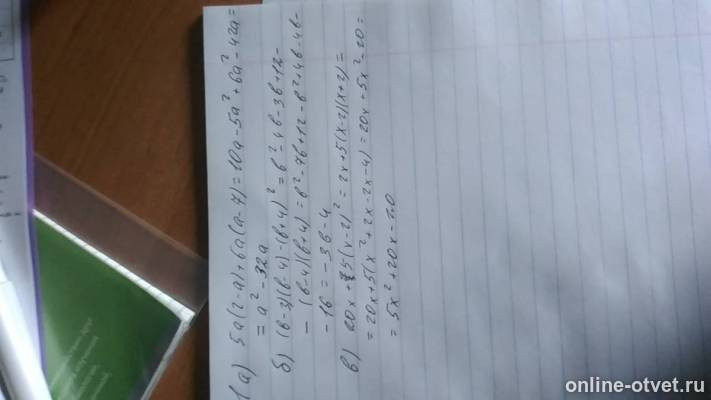 1 а) 5a(2-a)+6a(a-7)=10a-5a²+6a²-42a=
= a²-32a
б) (b-3)(b-4)-(b+4)²=b²-4b-3b+12-
-(b-4)(b+4)=b²-7b+12-b²+4b-4b-
-16=-3b-4
в) 20x+5(x-2)²=2x+5(x-2)(x+2)=
=20x+5(x²+2x-2x-4)=20x+5x²-20=
=5x²+20x-20
online-otvet.ru